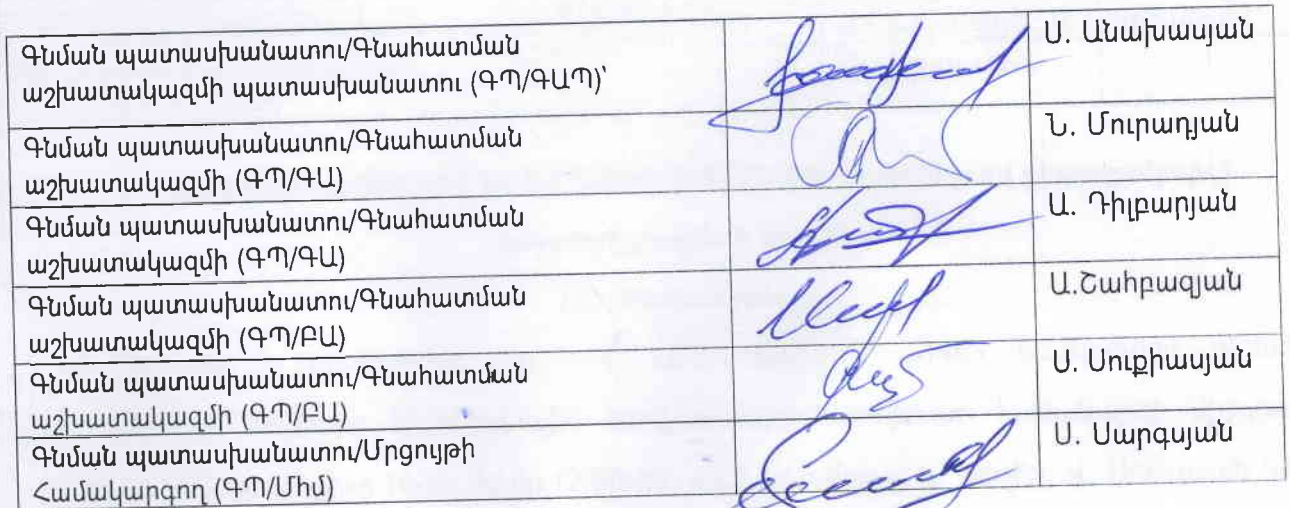 Գնման պատասխանատու/Գնահատման
աշխատակազմի պատասխանատու (ԳՊ/ԳԱՊ)՝
Ս. Անախասյան
Գնման պատասխանատու/Գնահատման
աշխատակազմի (ԳՊ/ԳԱ)
Ն. Մուրադյան
Գնման պատասխանատու/Գնահատման
աշխատակազմի (ԳՊ/ԳԱ)
Ա. Դիլբարյան
Գնման պատասխանատու/Գնահատման
աշխատակազմի (ԳՊ/ԲԱ)
Ա.Շահբազյան
Գնման պատասխանատու/Գնահատման
աշխատակազմի (ԳՊ/ԲԱ)
Ս. Սուքիասյան
Գնման պատասխանատու/Մրցույթի
Համակարգող (ԳՊ/Մհմ)
Ս. Սարգսյան